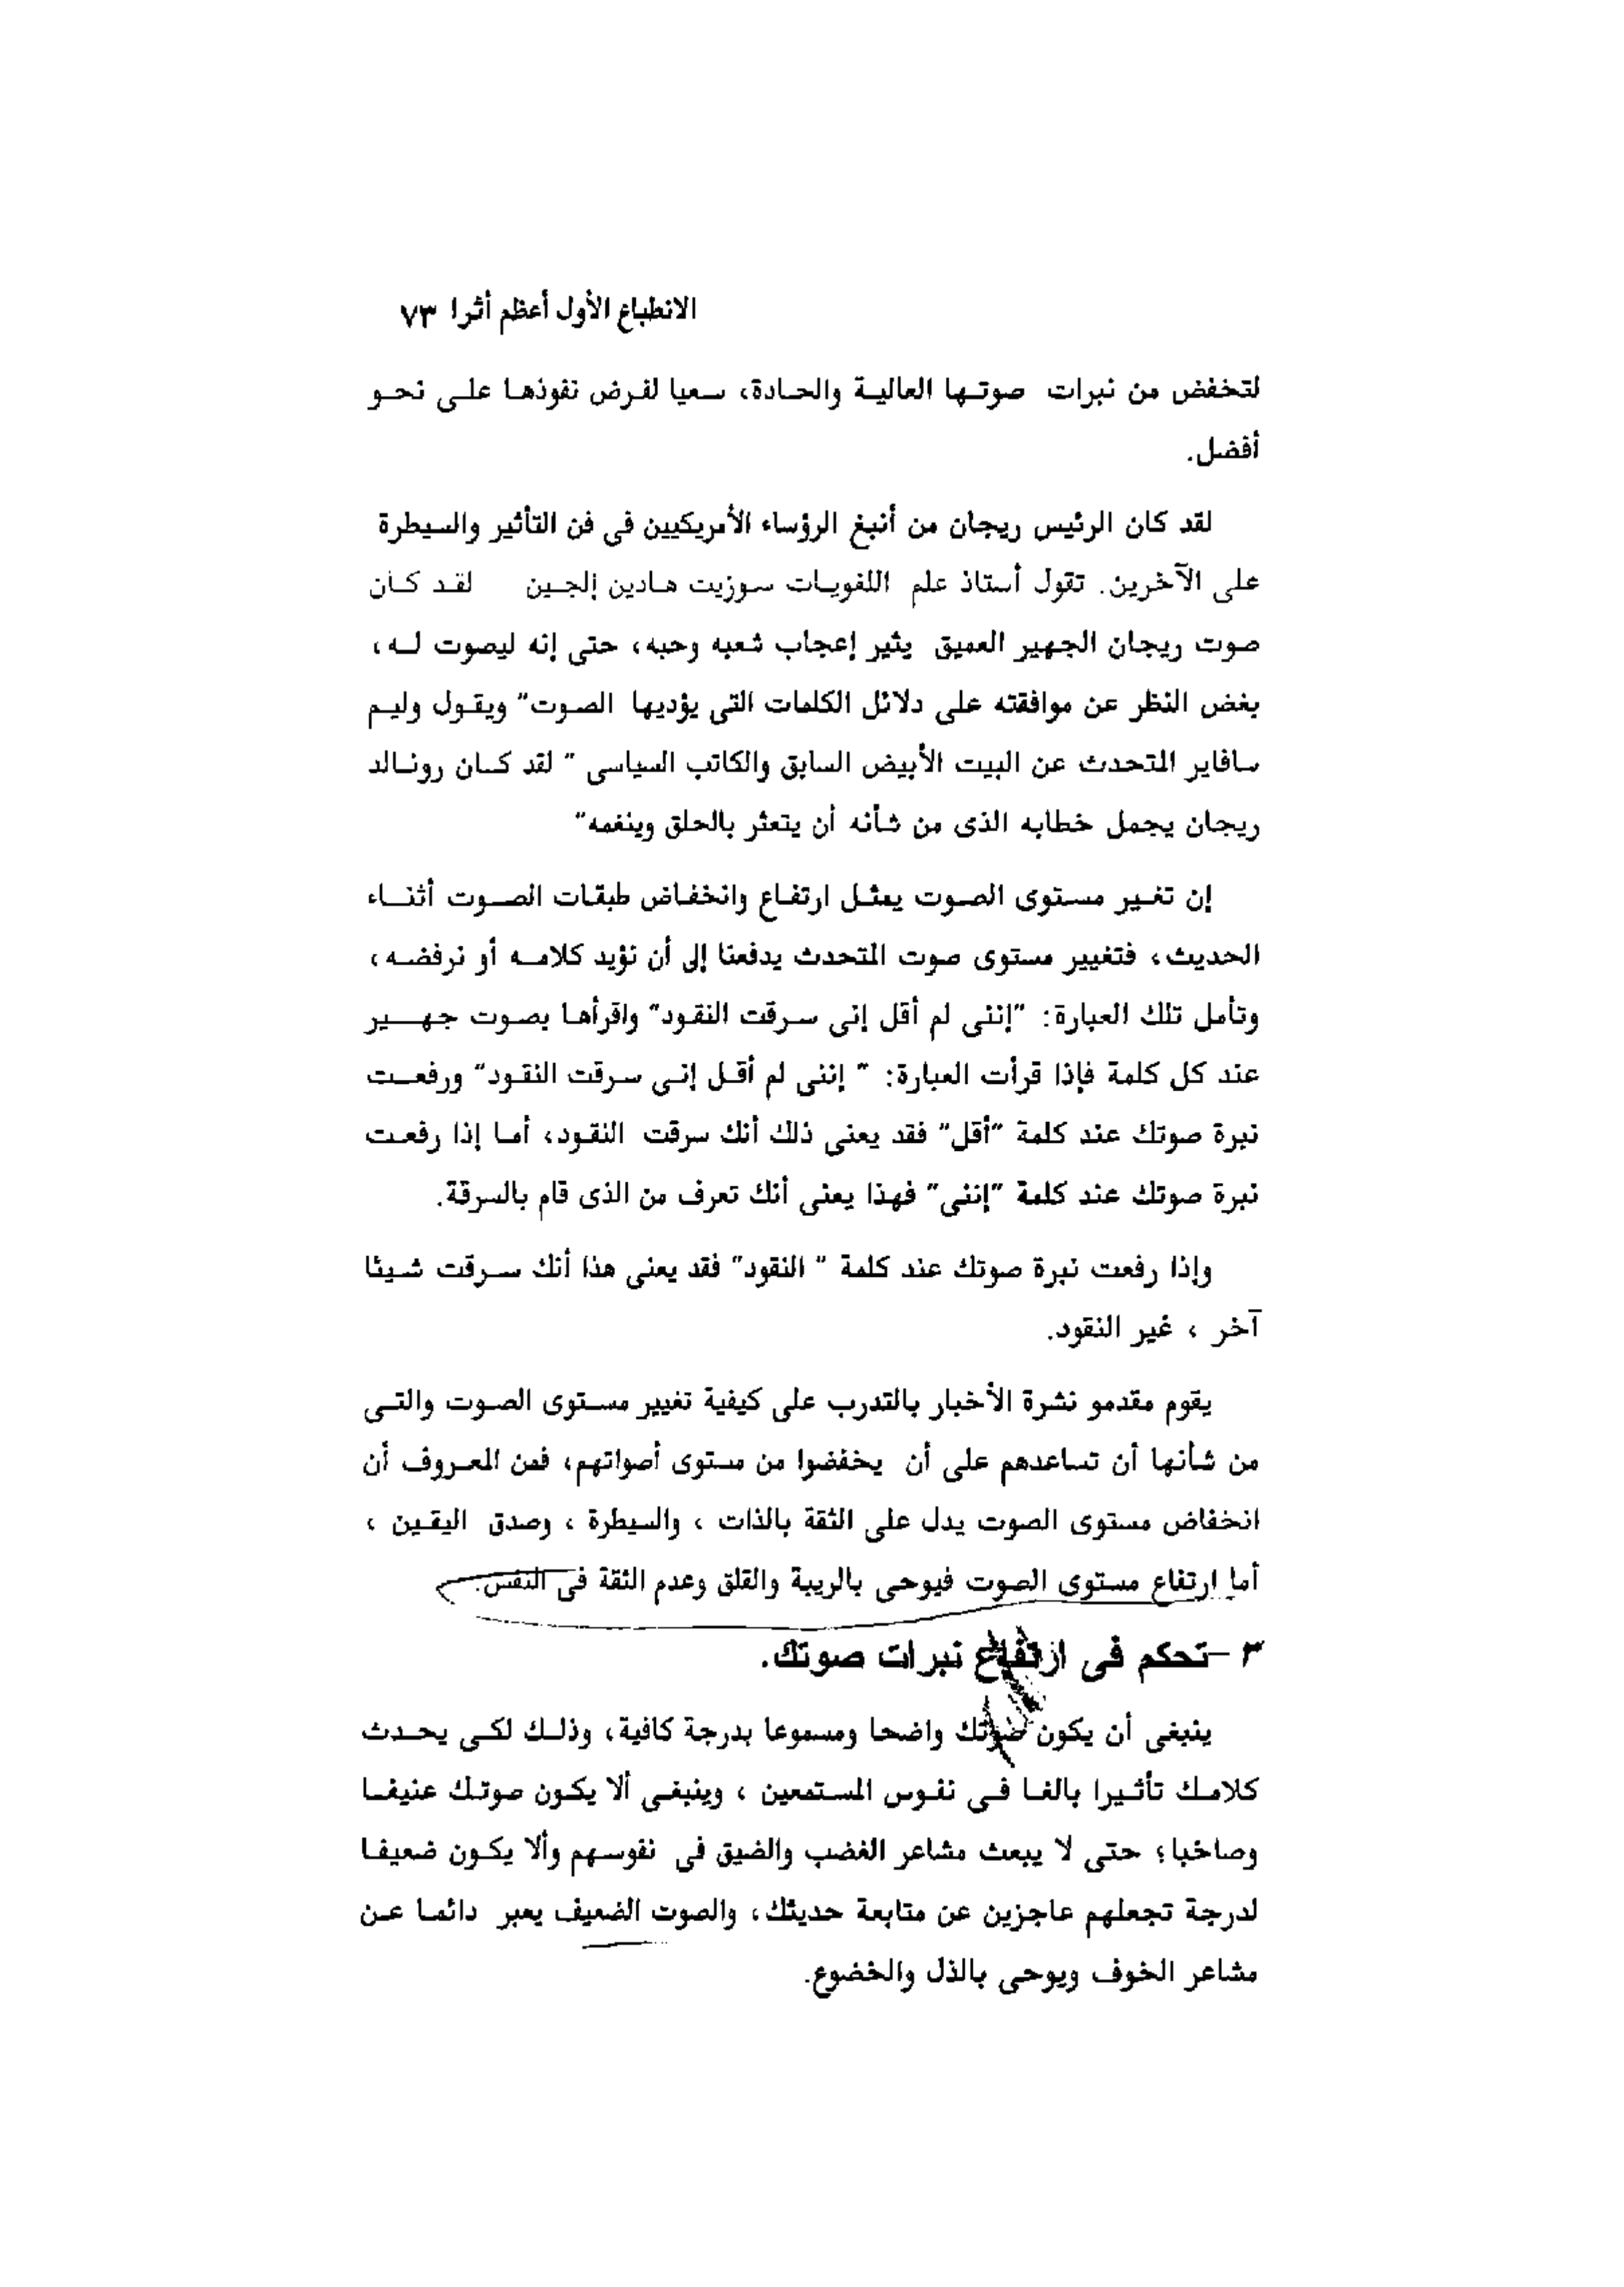 الانطباع الأول أعظم أثرا ٧٣
لتخفض من نبرات صوتها العالية والحادة، سعيا لفرض نفوذها على نحو
أفضل.
لقد كان الرئيس ريجان من أنبغ الرؤساء الأمريكيين فى فن التأثير والسيطرة
على الآخرين. تقول أستاذ علم اللغويات سوزيت هادين إلجين لقد كان
صوت ريجان الجهير العميق يثير إعجاب شعبه وحبه، حتى إنه ليصوت له،
بغض النظر عن موافقته على دلائل الكلمات التى يؤديها الصوت" ويقول وليم
سافاير المتحدث عن البيت الأبيض السابق والكاتب السياسى " لقد كان رونالد
ريجان يجمل خطابه الذى من شأنه أن يتعثر بالحلق وينغمه"
إن تغير مستوى الصوت يمثل ارتفاع وانخفاض طبقات الصوت أثناء
الحديث، فتغيير مستوى صوت المتحدث يدفعنا إلى أن نؤيد كلامه أو نرفضه،
وتأمل تلك العبارة: "إننى لم أقل إنى سرقت النقود" واقرأها بصوت جهير
عند كل كلمة فإذا قرأت العبارة: " إننى لم أقل إنى سرقت النقود" ورفعت
نبرة صوتك عند كلمة "أقل" فقد يعنى ذلك أنك سرقت النقود، أما إذا رفعت
نبرة صوتك عند كلمة "إننى" فهذا يعنى أنك تعرف من الذى قام بالسرقة.
وإذا رفعت نبرة صوتك عند كلمة " النقود" فقد يعنى هذا أنك سرقت شيئا
آخر ، غير النقود.
يقوم مقدمو نشرة الأخبار بالتدرب على كيفية تغيير مستوى الصوت والتى
من شأنها أن تساعدهم على أن يخفضوا من مستوى أصواتهم، فمن المعروف أن
انخفاض مستوى الصوت يدل على الثقة بالذات ، والسيطرة ، وصدق اليقين ،
أما ارتفاع مستوى الصوت فيوحى بالريبة والقلق وعدم الثقة فى النفس.
٣ -تحكم فى ارتفاع نبرات صوتك.
ينبغى أن يكون صوتك واضحا ومسموعا بدرجة كافية، وذلك لكى يحدث
كلامك تأثيرا بالغا فى نفوس المستمعين ، وينبغى ألا يكون صوتك عنيفا
وصاخبا؛ حتى لا يبعث مشاعر الغضب والضيق فى نفوسهم وألا يكون ضعيفا
لدرجة تجعلهم عاجزين عن متابعة حديثك، والصوت الضعيف يعبر دائما عن
مشاعر الخوف ويوحى بالذل والخضوع.